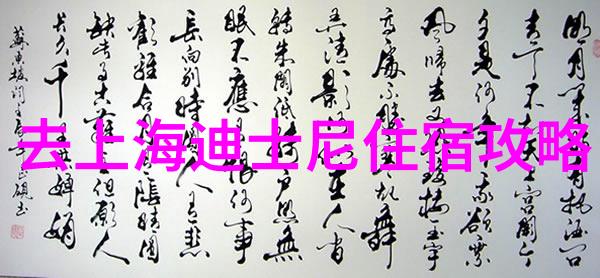 去上海迪士尼住宿攻略
明月幾時有把酒问
青天不知天上宫阙今
夕是何年我欲乘
风归去又恐琼楼玉宇
高處不勝寒起舞
弄清影何似在人间
轉朱阁低绮户照無
眠不應有恨何事
長向别時圆人有悲
歡離合月有陰晴圆
缺此事古難全但願人
長久千里共婵娟
蘇東坡词